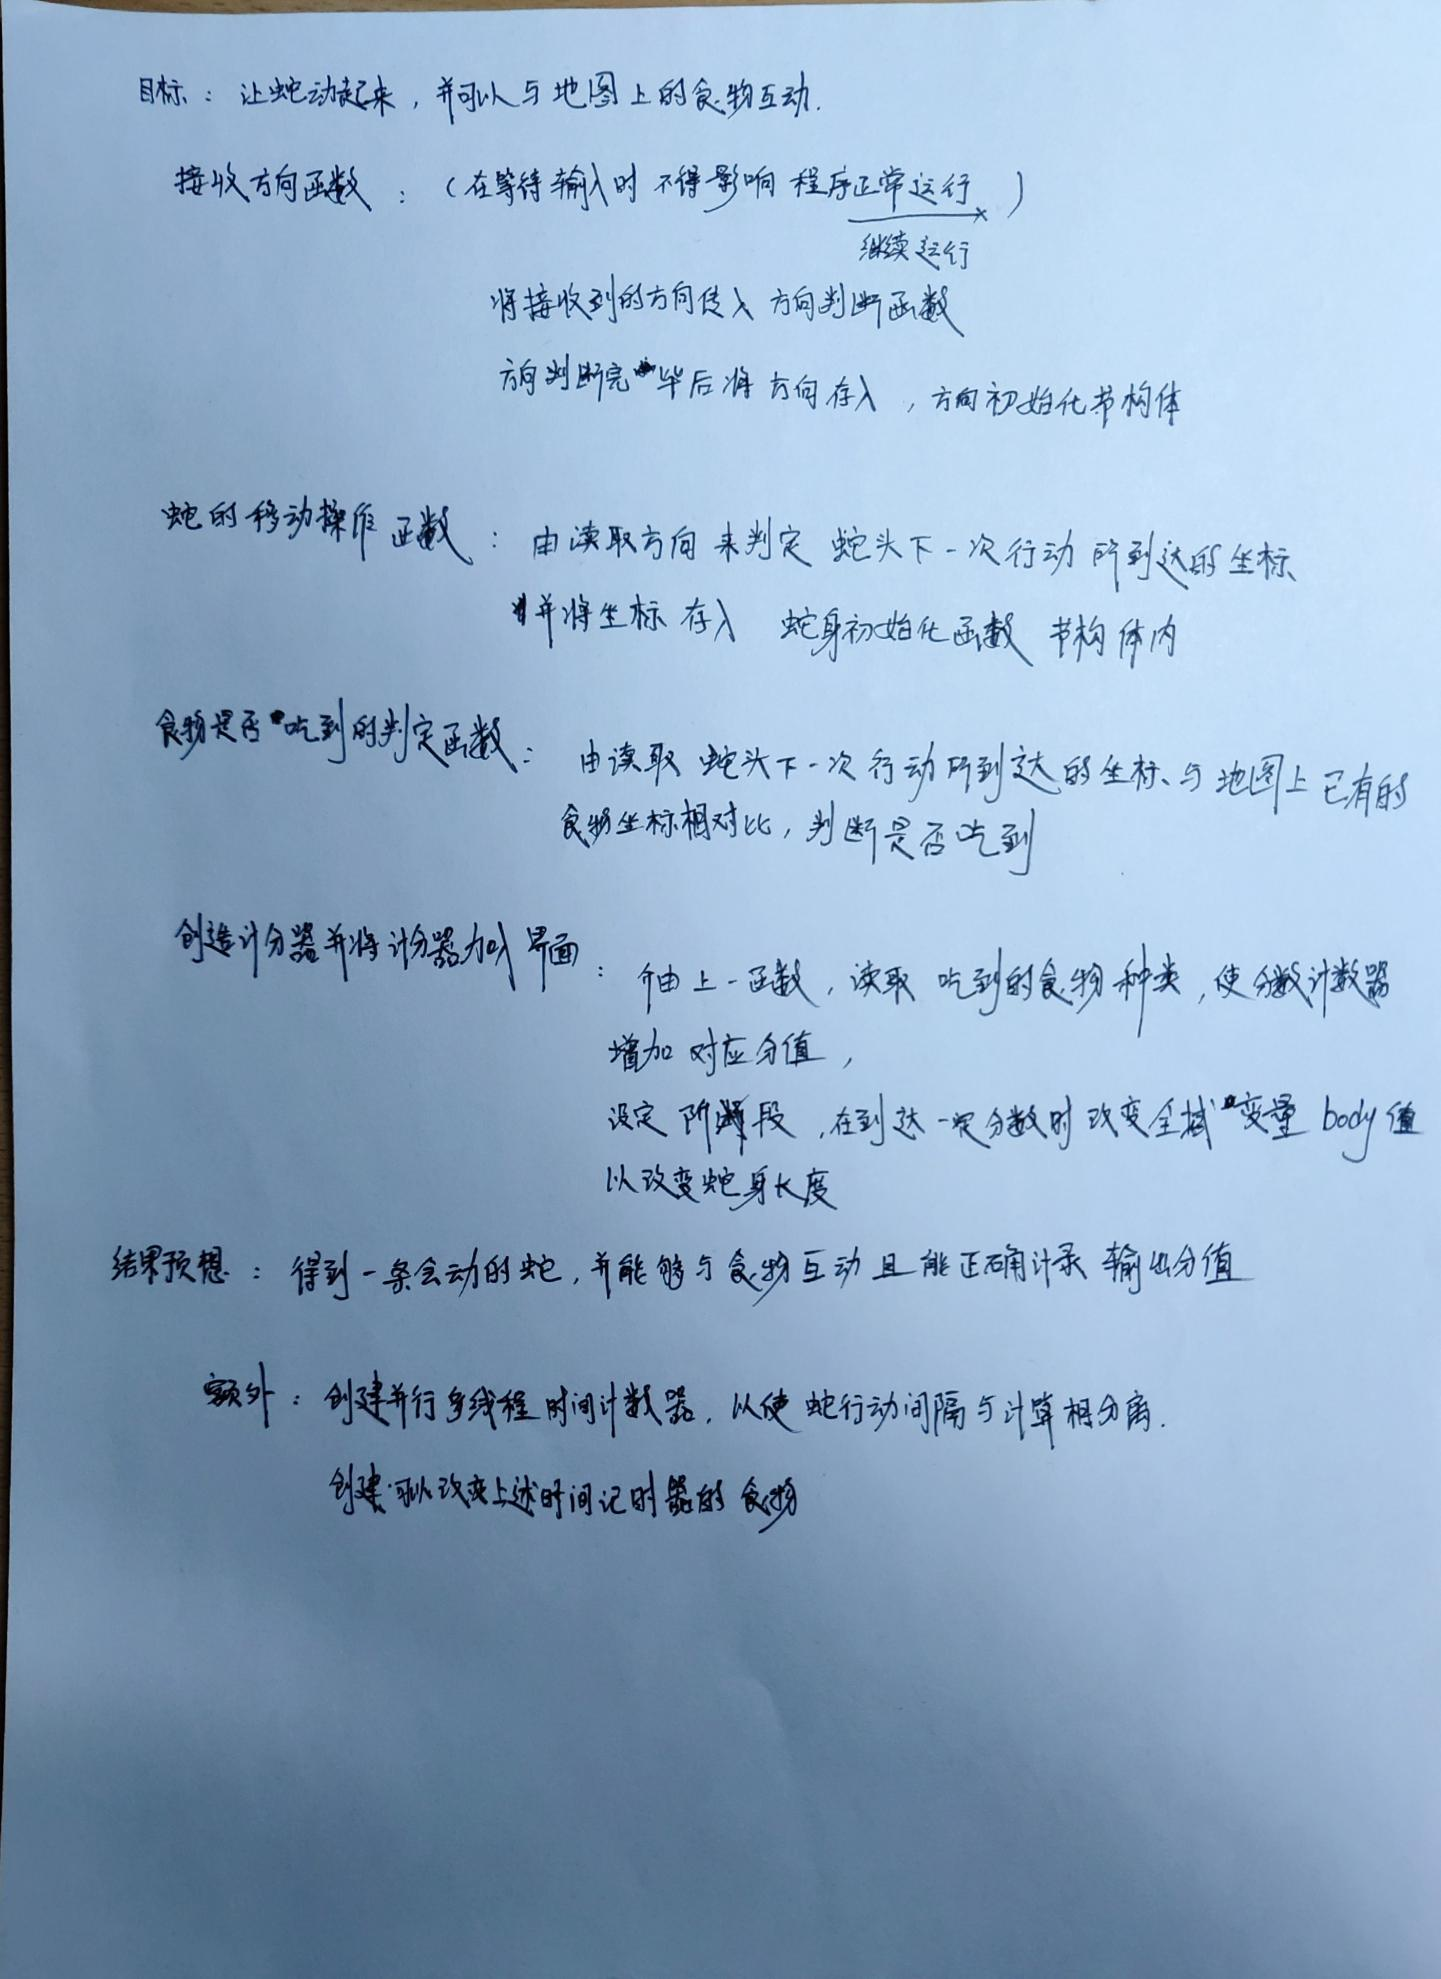 目标：让蛇动起来，并可以与地图上的食物互动.
接收方向函数：（在等待输入时不得影响程序正常运行）
继续运行
将接收到的方向传入方向判断函数
方向判断完毕后将方向存入，方向初始化节构体
蛇的移动操作函数：由读取方向来判定蛇头下一次行动所到达的坐标
并将坐标存入 蛇身初始化函数 节构体内
食物是否吃到的判定函数：由读取蛇头下一次行动所到达的坐标、与地图上已有的
食物坐标相对比，判断是否吃到
创造计分器并将计分器加入界面：由上一函数，读取吃到的食物种类，使分数计数器
增加对应分值，
设定阶段，在到达一定分数时改变全域变量body值
以改变蛇身长度
结果预想：得到一条会动的蛇，并能够与食物互动且能正确计录输出分值
额外：创建并行多线程时间计数器，以使蛇行动间隔与计算相分离.
创建可以改变上述时间记时器的食物